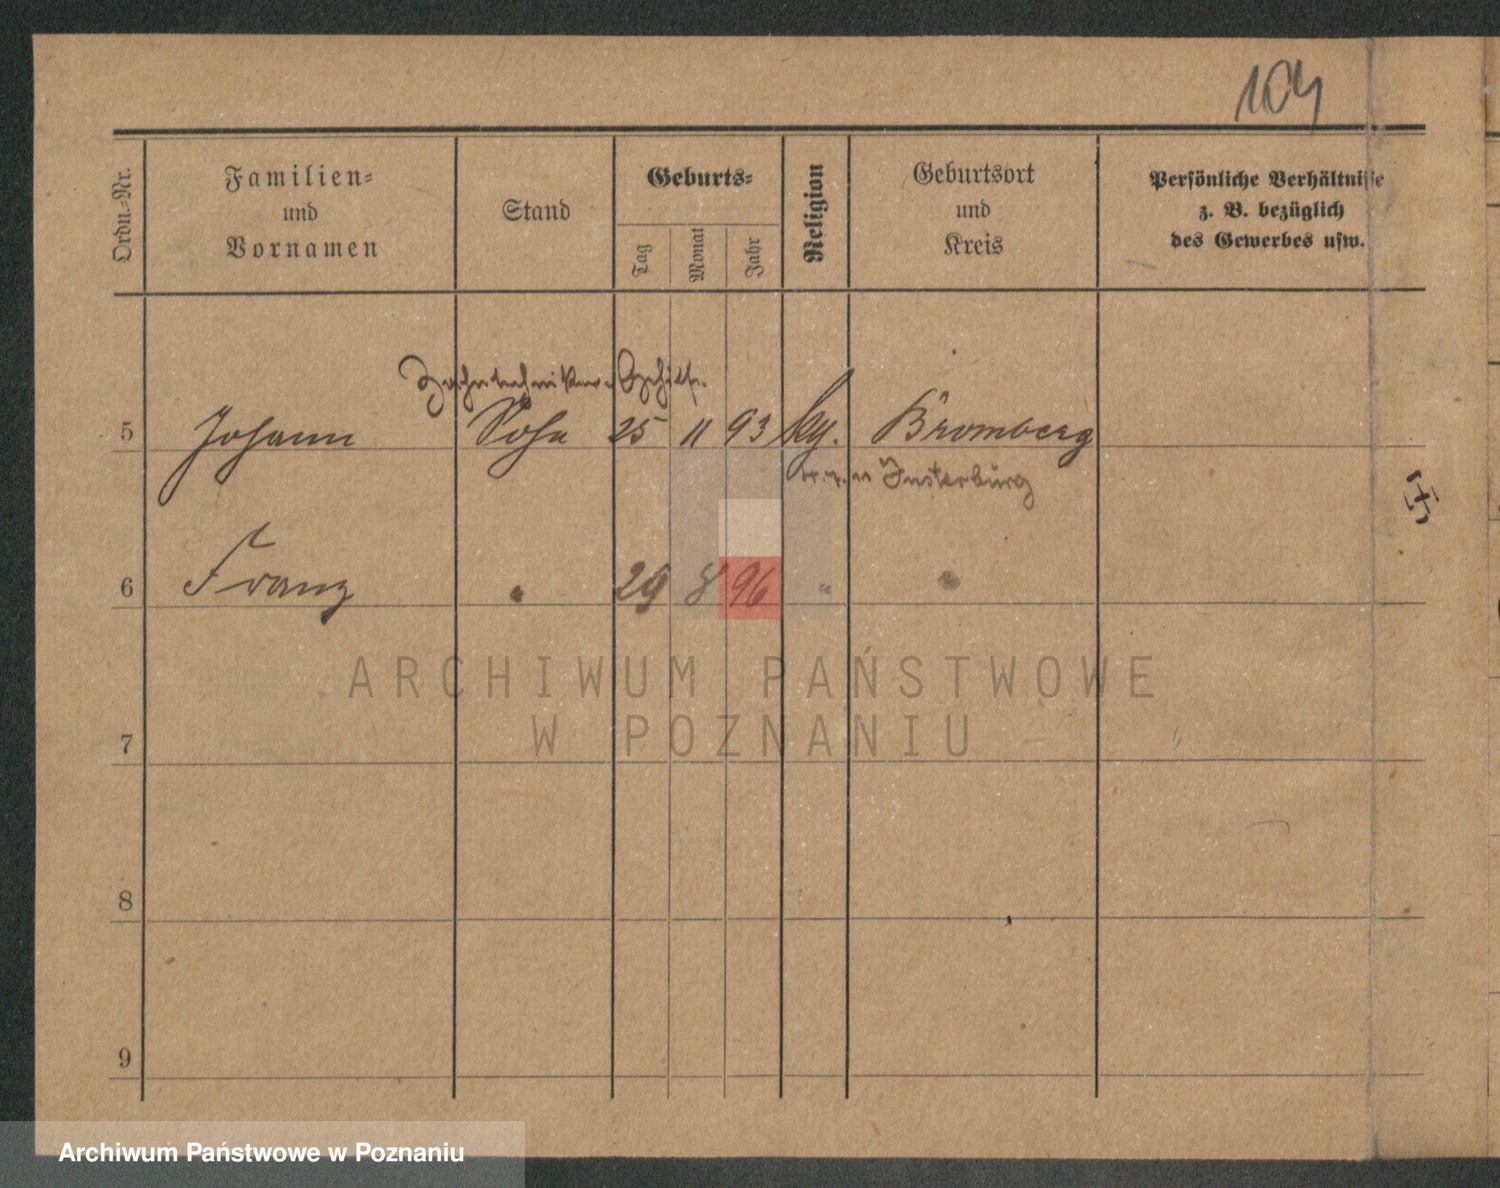 104
Ordn.-Nr.
Familien-
und
Vornamen
Stand
Geburts-
Tag
Monat
Jahr
Religion
Geburtsort
und
Kreis
Persönliche Verhältnisse
z. B. bezüglich
des Gewerbes usw.
Zahntechniker-Gehilfe
5 Johann Sohn 25 11 93 kg. Bromberg
Insterburg
6 Franz " 29 8 96 " "
ARCHIWUM PAŃSTWOWE
W POZNANIU
7
8
9
Archiwum Państwowe w Poznaniu